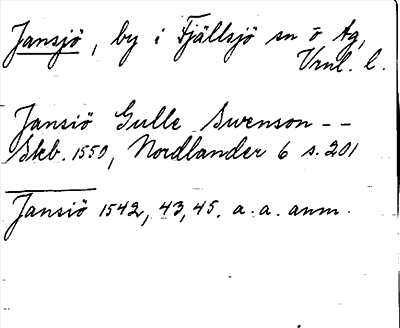 Jansjö, by i Fjällsjö sn o tg,
Vrnl. l.
Jansiö Gulle Swenson - -
Skb. 1550, Nordlander 6 s. 201
Jansiö 1542, 43, 45. a. a. anm.